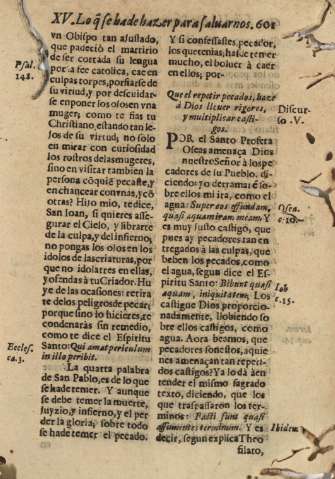 XV. Lo q̃ se ha de hazer para saluarnos. 601
vn Obispo tan afustado,
que padeciò el martirio
de ser cortada su lengua
por a fee catolica, cae en
culpas torpes, porfiarse de
su virtud, y por descuidar-
se en poner los ojos en vna
muger, como te fias tu
Christiano, estando tan le-
jos de su virtud, no solo
en mirar con curiosidad
los rostros de las mugeres,
sino en visitar tambien la
persona cõ quiẽ pecaste, y
en chancear con vnas, y cõ
otras? Hijo mio, te dice,
San Ioan, si quieres asse-
gurar el Cielo, y librarte
de la culpa, y del infierno,
no pongas los ojos en los
idolos de las criaturas, por
que no idolatres en ellas,
y ofendas à tu Criador. Hu
ye de las ocasiones: retira
te de los peligros de pecar:
porque sino lo hicieres, te
condenaràs sin remedio,
como te dice el Espiritu
Santo: Qui amat periculum
in illo peribit.
La quarta palabra
de San Pablo, es de lo que
se ha de temer. Y aunque
se debe temer la muerte,
Juyzio, y infierno, y el per
der la gloria, sobre todo
se ha de temer el pecado.
Psal.
148.
Eccles.
ca. 3.
Y si confessastes, pecador,
los que tenias, has de temer
mucho, el boluer à caer
en ellos, por-
Que el repetir pecados, hace
à Dios llouer rigores,
y multiplicar casti-
gos.
POR el Santo Profeta
Oseas amenaça Dios
nuestro Señor à los pe-
cadores de su Pueblo, di-
ciendo: yo derramarè so-
bre ellos mi ira, como el
agua: Super eos effundam,
quasi aquam iram meam. Y
es muy justo castigo, que
pues ay pecadores tan en
tregados à las culpas, que
beben los pecados, como
el agua, segun dice el Es-
piritu Santo: Bibunt quasi
aquam, iniquitatem, Los
castigue Dios proporcio-
nadamente, lloviendo so
bre ellos castigos, como
agua. Aora beamos, que
pecadores son estos, à quie
nes amenaçan tan repeti-
dos castigos? Ya lo dà à en
tender el mismo sagrado
texto, diciendo, que los
que traspassaron los ter-
minos: Facti sunt quasi
assumentes terminum. Y es
decir, segun explica Theo
filato,
Discur-
so .V.
Osea.
c. 10.
Iob
c. 15.
Ibidem